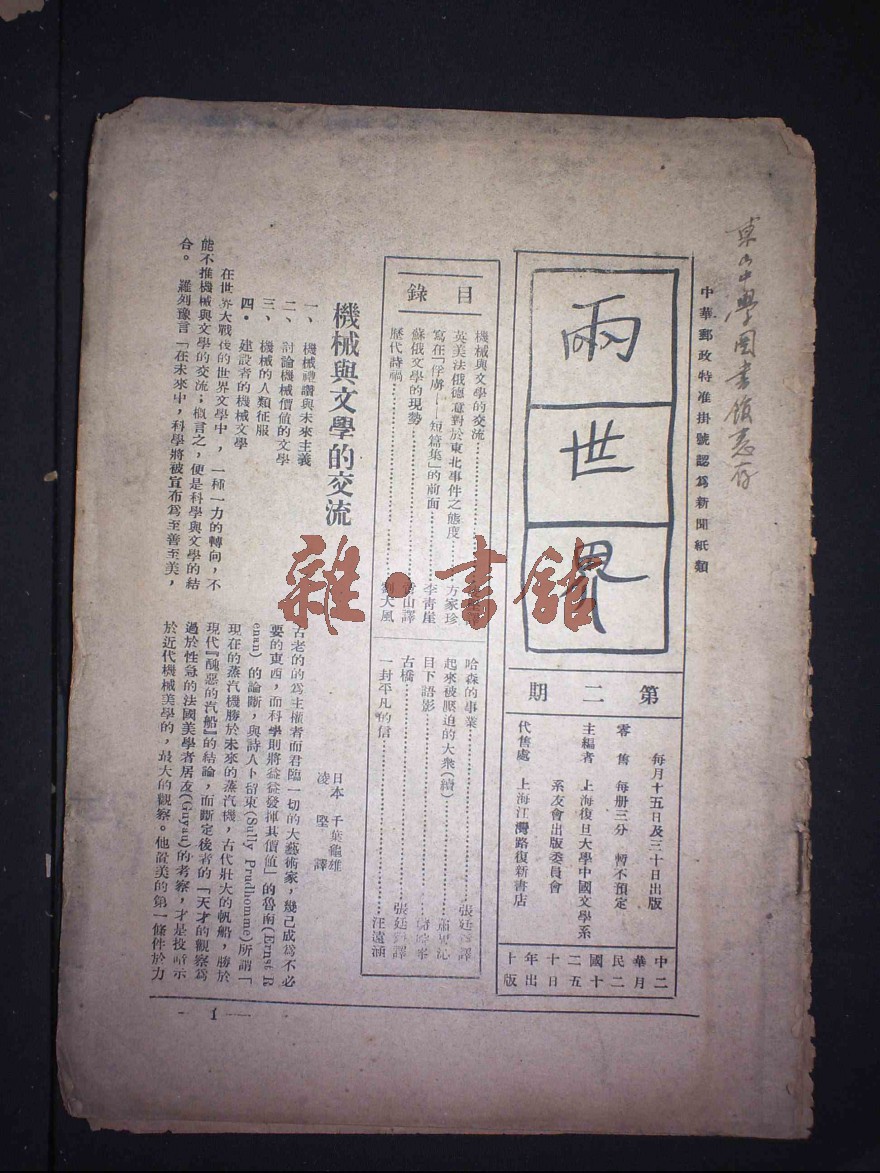 東山中學圖書館惠存
中華郵政特准掛號認爲新聞紙類
兩世界
第二期
每月十五日及三十日出版
零售 每册三分 暫不預定
主編者 上海復旦大學中國文學系
系友會出版委員會
代售處 上海江灣路復新書店
中華民國二十年十
二月二十五日出版
目錄
機械與文學的交流
英美法俄德意對於東北事件之態度……方家珍
寫在「俘虜——短篇集」的前面……李青崖
蘇俄文學的現勢……山譯
歷代詩禍……劉大風
哈森的事業……張廷譯
起來被壓迫的大衆(續)……蕭
目下語影
古橋……張廷譯
一封平凡的信……汪遠涵
機械與文學的交流
日本 千葉龜雄
凌堅譯
一、機械禮讚與未來主義
二、討論機械價値的文學
三、機械的人類征服
四・建設者的機械文學
在世界大戰後的世界文學中,一種一力的轉向,不
能不推機械與文學的交流;概言之,便是科學與文學的結
合。羅列豫言「在未來中,科學將被宣布爲至善至美,
古老的的爲主權者而君臨一切的大藝術家,幾已成爲不必
要的東西,而科學則將益益發揮其價値」的魯南(Ernst R
enan)的論斷,與詩人卜留東(Sully Prudhomme)所謂「
現在的蒸汽機勝於未來的蒸汽機,古代壯大的帆船,勝於
現代『醜惡的汽船』的結論,而斷定後者的「天才的觀察爲
過於性急的法國美學者居友(Guyau)的考察,才是投暗示
於近代機械美學的,最大的觀察。他置美的第一條件於力
— 1 —
雜・書館